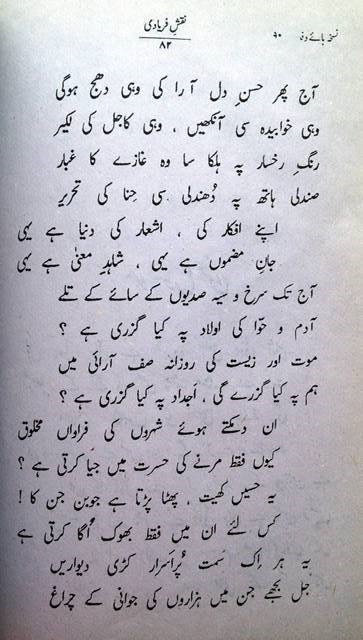 نسخہ ہائے وفا
۹۰
نقشِ فریادی
۸۲
آج پھر حسنِ دل آرا کی وہی دھج ہوگی
وہی خوابیدہ سی آنکھیں ، وہی کاجل کی لکیر
رنگِ رخسار پہ ہلکا سا وہ غازے کا غبار
صندلی ہاتھ پہ دُھندلی سی حِنا کی تحریر
اپنے افکار کی ، اشعار کی دنیا ہے یہی
جانِ مضموں ہے یہی ، شاہدِ معنیٰ ہے یہی
آج تک سرخ و سیہ صدیوں کے سائے کے تلے
آدم و حوّا کی اولاد پہ کیا گزری ہے ؟
موت اور زیست کی روزانہ صف آرائی میں
ہم پہ کیا گزرے گی ، اَجداد پہ کیا گزری ہے ؟
ان دمکتے ہوئے شہروں کی فراواں مخلوق
کیوں فقط مرنے کی حسرت میں جیا کرتی ہے ؟
یہ حسیں کھیت ، پھٹا پڑتا ہے جوبن جن کا !
کس لئے ان میں فقط بھوک اُگا کرتی ہے
یہ ہر اِک سَمت پُراَسرار کڑی دیواریں
جل بجھے جن میں ہزاروں کی جوانی کے چراغ